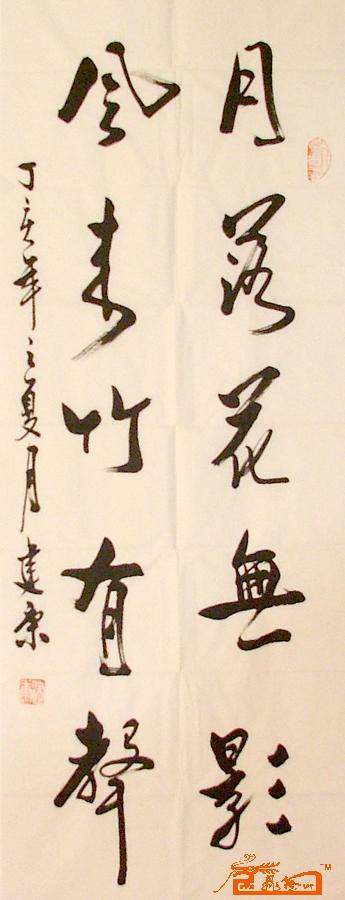 月落花無影
風来竹有聲
丁亥年之夏月建康